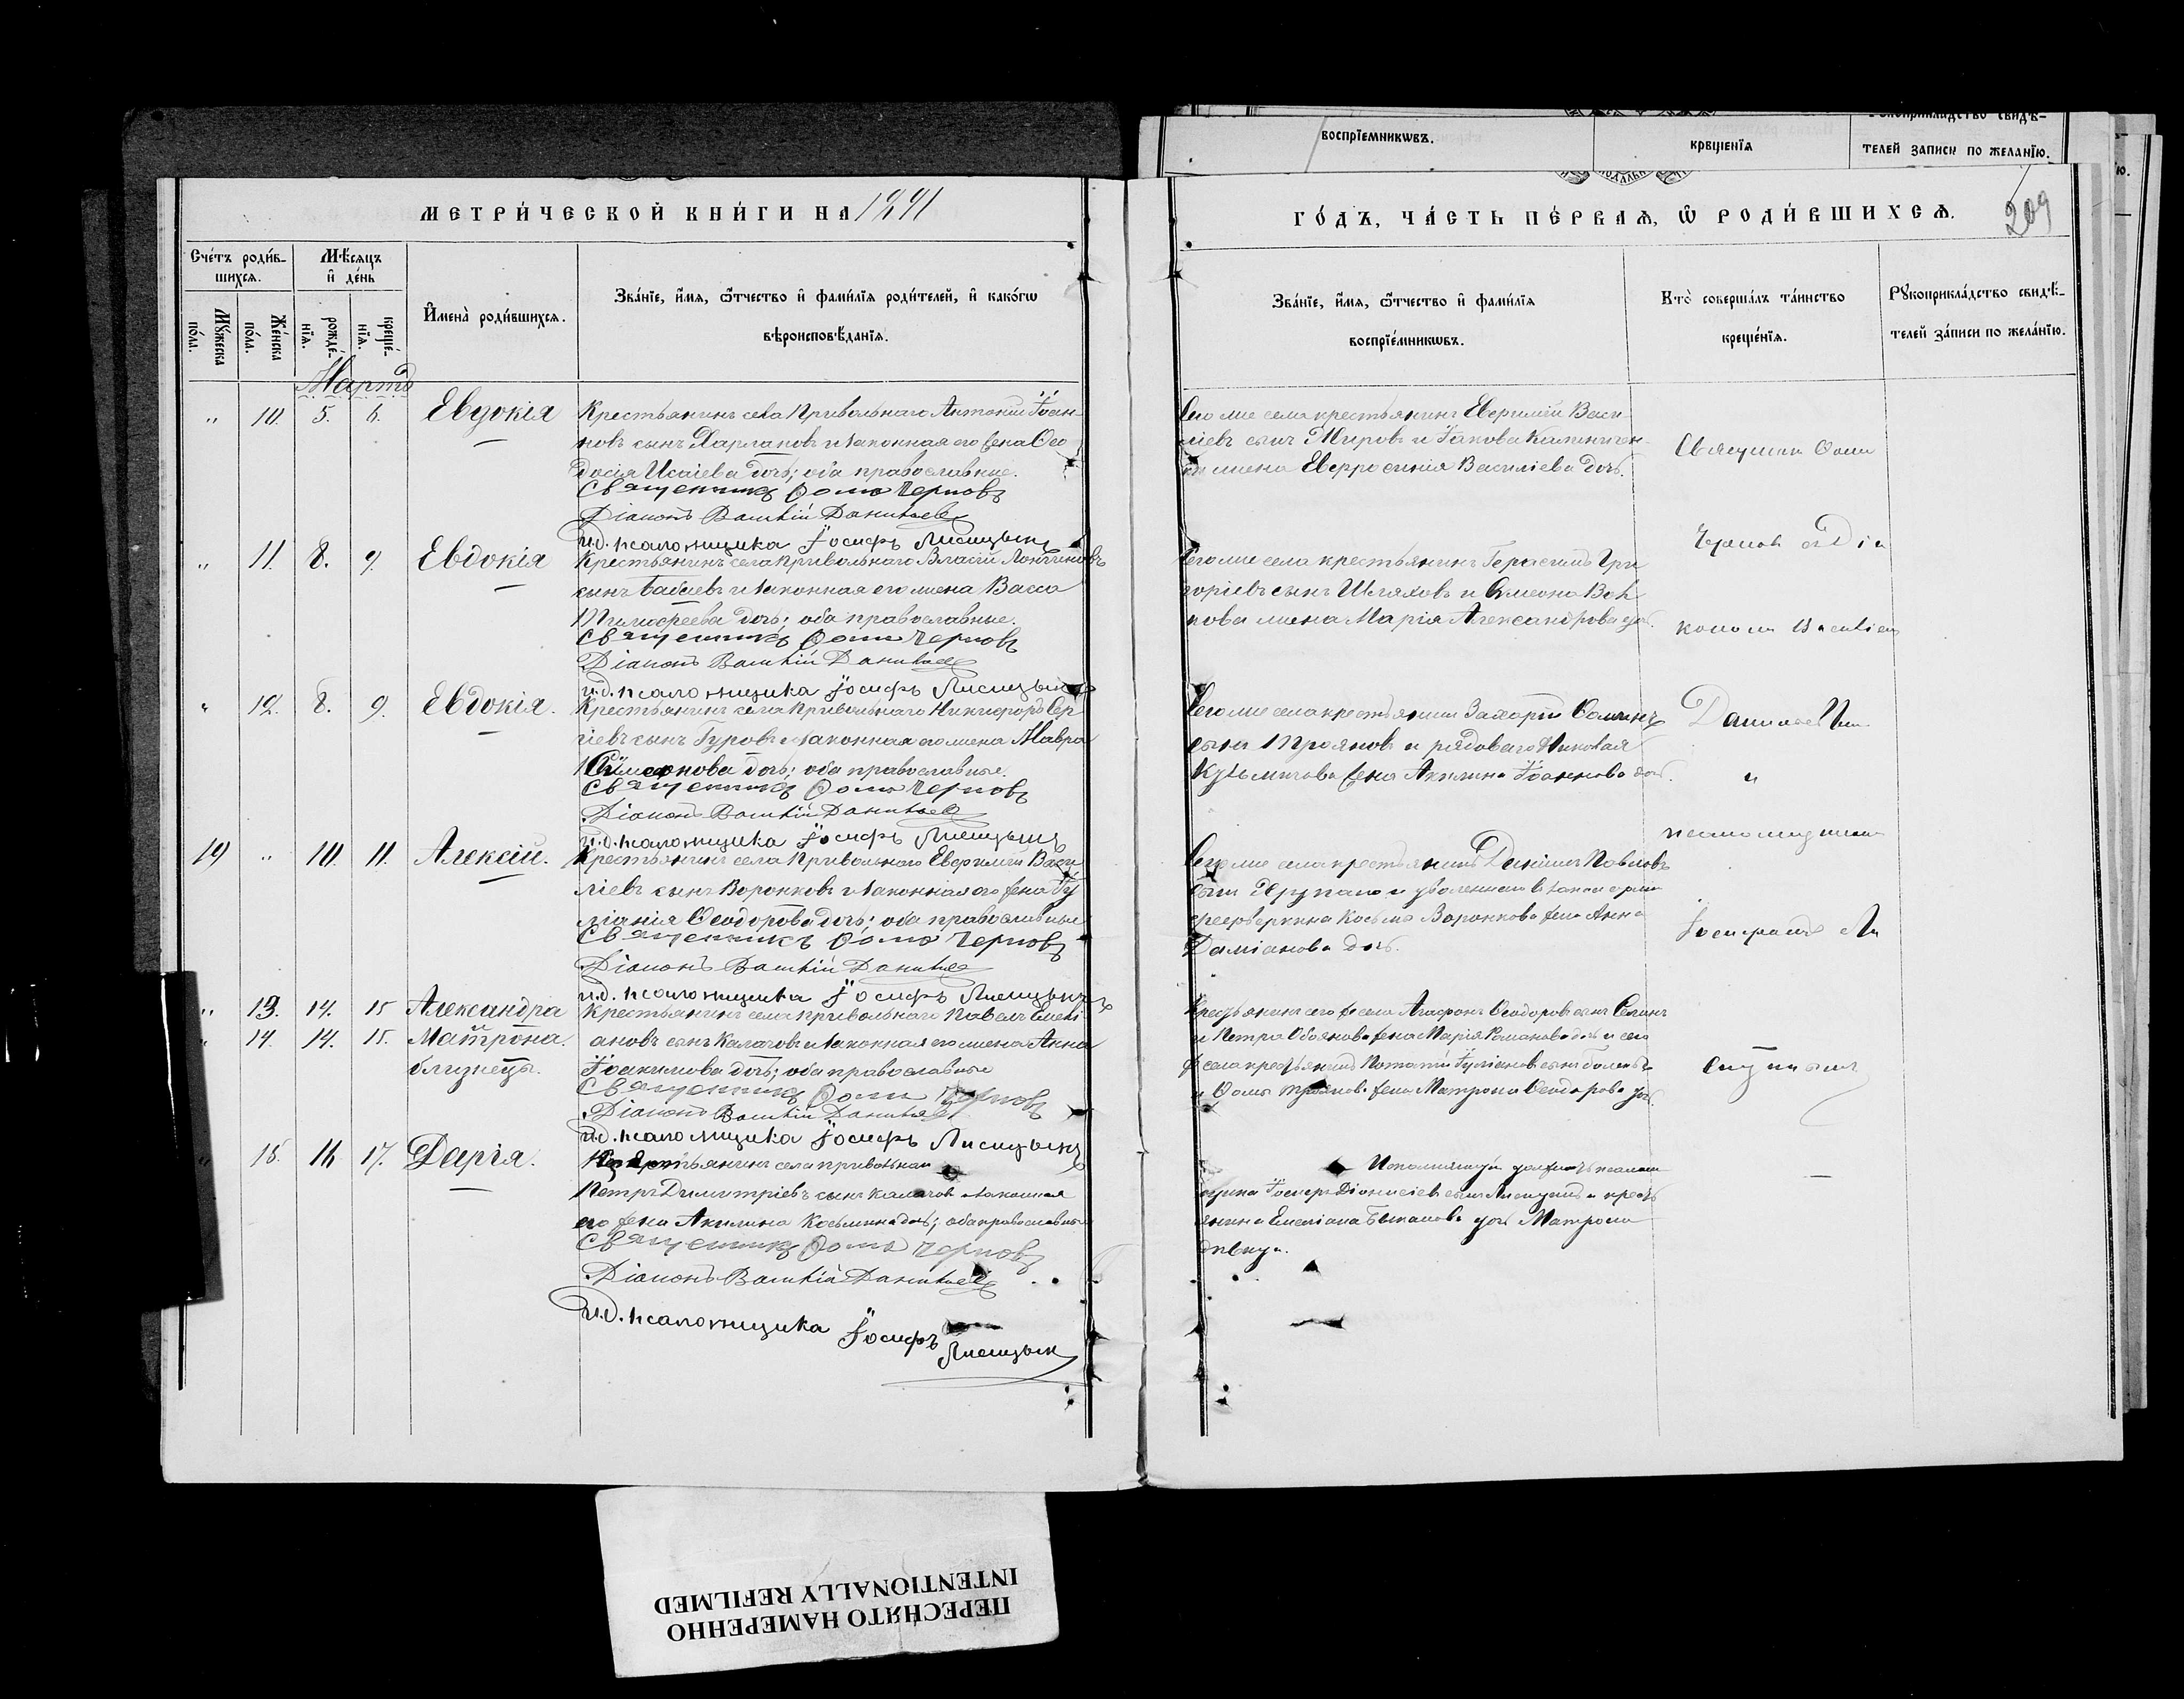 воспрїемникѡвъ.
крещенїя
телей записи по желанїю.
МЕТРИ́ЧЕСКОЙ КНИ́ГИ НА 1891
ГО́ДЪ, ЧА́СТЬ ПЕ́РВАѦ, Ѿ РОДИ́ВШИХСѦ.
209
Сче́тъ роди́в-
шихсѧ.
Мꙋ́жеска по́ла.
Же́нска по́ла.
Мѣ́сѧцъ
и҆ де́нь
рожде́-
нїѧ.
креще́-
нїѧ.
И҆мена̀ роди́вшихсѧ.
Зва́нїе, и҆́мѧ, ѻ҆́тчество и҆ фами́лїѧ роди́телей, и҆ како́гѡ
вѣроисповѣ́данїѧ.
Зва́нїе, и҆́мѧ, ѻ҆́тчество и҆ фами́лїѧ
воспрїе́мникѡвъ.
Кто̀ соверша́лъ та́инство
креще́нїѧ.
Рꙋкоприкла́дство свидѣ́-
телей за́писи по жела́нїю.
Мартъ
" 10. 5. 6. Евдокія
Крестьянинъ села Привольнаго Антоній Іоан-
новъ сынъ Харламовъ и законная его жена Ѳео
досія Исаіева дочь; оба православные.
Священникъ Ѳома Черновъ
Діаконъ Василій Данилов
и.д. псаломщика Іосифъ Лисицынъ
Того же села крестьянинъ Евѳимій Васи-
ліевъ сынъ Жировъ и Іакова
жена Евфросинія Василіева дочь.
Священник Ѳома
" 11. 8. 9. Евдокія
Крестьянинъ села Привольнаго Власій Логгиновъ
сынъ Бабаевъ и законная его жена Васса
Тимоѳеева дочь; оба православные.
Священникъ Ѳома Черновъ
Діаконъ Василій Данилов
и.д. псаломщика Іосифъ Лисицынъ
Того же села крестьянинъ Герасимъ Гри
горіевъ сынъ Шляховъ и Симеона
жена Марія Александрова доч.
Чернов с Діа
коном Василіем
" 12. 8. 9. Евдокія.
Крестьянинъ села Привольнаго Никифоръ Сер
гіевъ сынъ Гуровъ и законная его жена Мавра
Симеонова дочь; оба православные.
Священникъ Ѳома Черновъ
Діаконъ Василій Данилов
и.д. псаломщика Іосифъ Лисицынъ
Того же села крестьянин Захарій Ѳоминъ
сынъ Трояновъ и рядоваго Николая
Кузьмичова жена Акилина Іоаннова доч.
Данилов
и
псаломщиком
19 " 10. 11. Алексій.
Крестьянинъ села Привольнаго Евѳимій Васи
ліевъ сынъ Воронковъ и законная его жена Іу
ліанія Ѳеодорова дочь; оба православные
Священникъ Ѳома Черновъ
Діаконъ Василій Данилов
и.д. псаломщика Іосифъ Лисицынъ
Того же села крестьянинъ Даніилъ Павловъ
сынъ и уволеннаго въ запас арміи
фейерверкина Косьмы Воронкова жена Анна
Даміанова дочь.
Іосифомъ Ли
" 13. 14. 15 Александра
" 14. 14. 15. Матрона.
близнецы.
Крестьянинъ села Привольнаго Павелъ Емелі
ановъ сынъ Калачовъ и законная его жена Анна
Іоакимова дочь; оба православные
Священникъ Ѳома Черновъ
Діаконъ Василій Данилов
и.д. псаломщика Іосифъ Лисицынъ
Крестьянинъ сего же села Агафонъ Ѳеодоровъ сынъ
и Петра Обоянова жена Марія Романова дочь и сего
же села крестьянинъ Іуліановъ сынъ
и Ѳомы Троянова жена Матрона Ѳеодорова доч.
сицыным
" 15. 16 17. Дарія.
Крестьянинъ села Привольнаго
Петръ Димитріевъ сынъ Калачов и законная
его жена Акилина Косьмина дочь; оба православные
Священникъ Ѳома Черновъ
Діаконъ Василій Данилов
и.д. псаломщика Іосифъ
Лисицын
Исполняющій должность псалом
щика Іосифъ Діонисіев сынъ Лисицынъ и кресть
янина Емеліана дочь Матрона
дѣвица.
ПЕРЕСНЯТО НАМЕРЕННО
INTENTIONALLY REFILMED